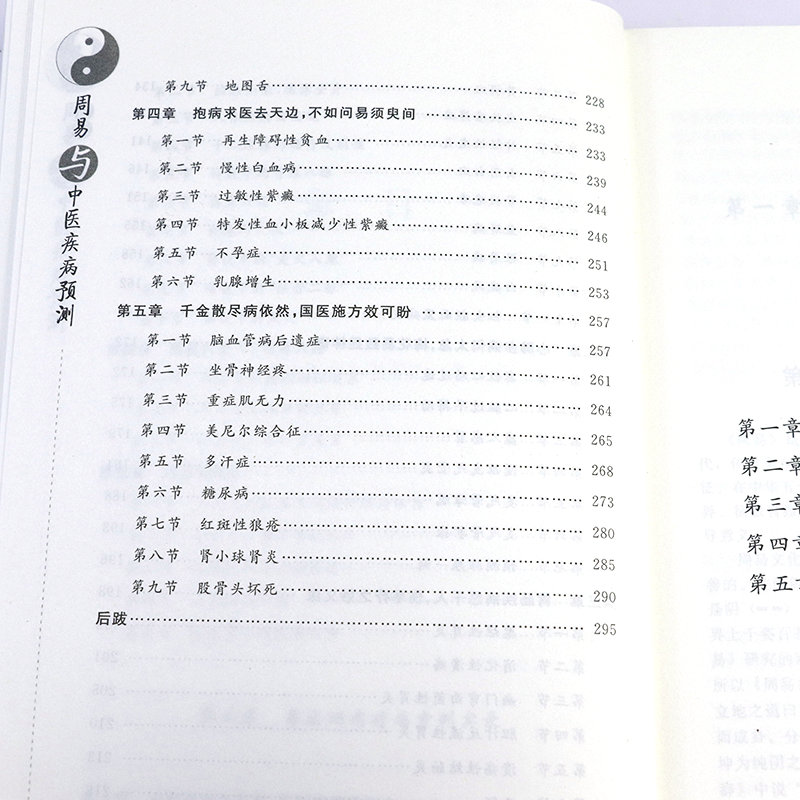 周易与中医疾病预测
第九节 地图舌…………228
第四章 抱病求医去天边，不如问易须臾间…………233
第一节 再生障碍性贫血…………233
第二节 慢性白血病…………239
第三节 过敏性紫癜…………244
第四节 特发性血小板减少性紫癜…………246
第五节 不孕症…………251
第六节 乳腺增生…………253
第五章 千金散尽病依然，国医施方效可盼…………257
第一节 脑血管病后遗症…………257
第二节 坐骨神经疼…………261
第三节 重症肌无力…………264
第四节 美尼尔综合征…………265
第五节 多汗症…………268
第六节 糖尿病…………273
第七节 红斑性狼疮…………280
第八节 肾小球肾炎…………285
第九节 股骨头坏死…………290
后跋…………295
第一章
第二章
第三章
第四章
第五